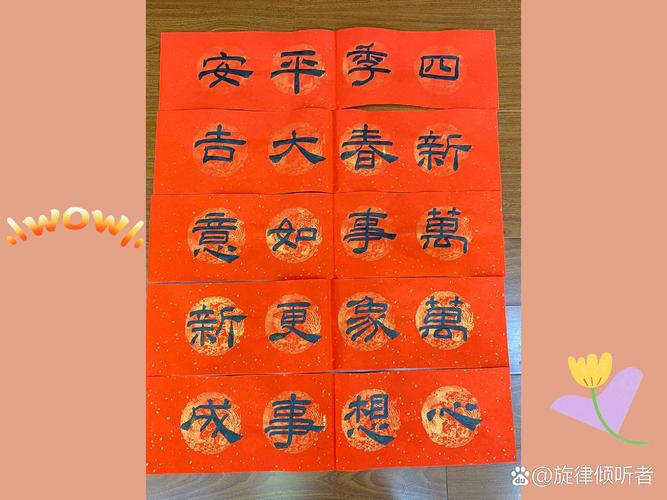 四季平安
新春大吉
萬事如意
萬象更新
心想事成
!WOW!
旋律倾听者